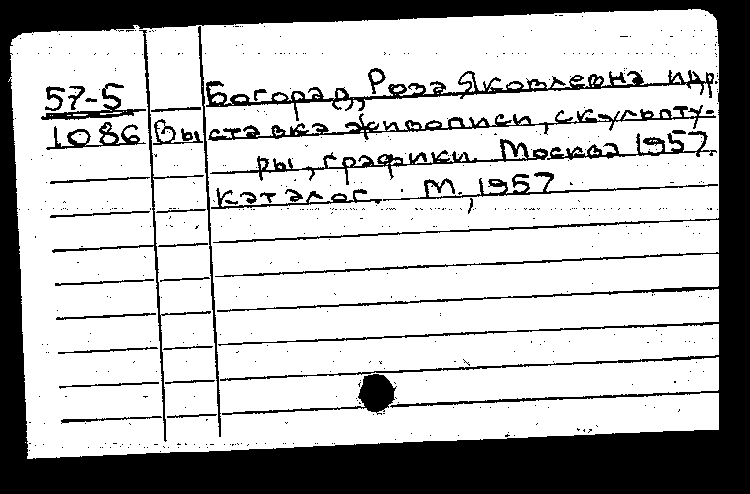 57-5 Богорад, Роза Яковлевна и др.
1086 Выставка живописи, скульпту-
ры, графики. Москва 1957.
каталог. М., 1957.